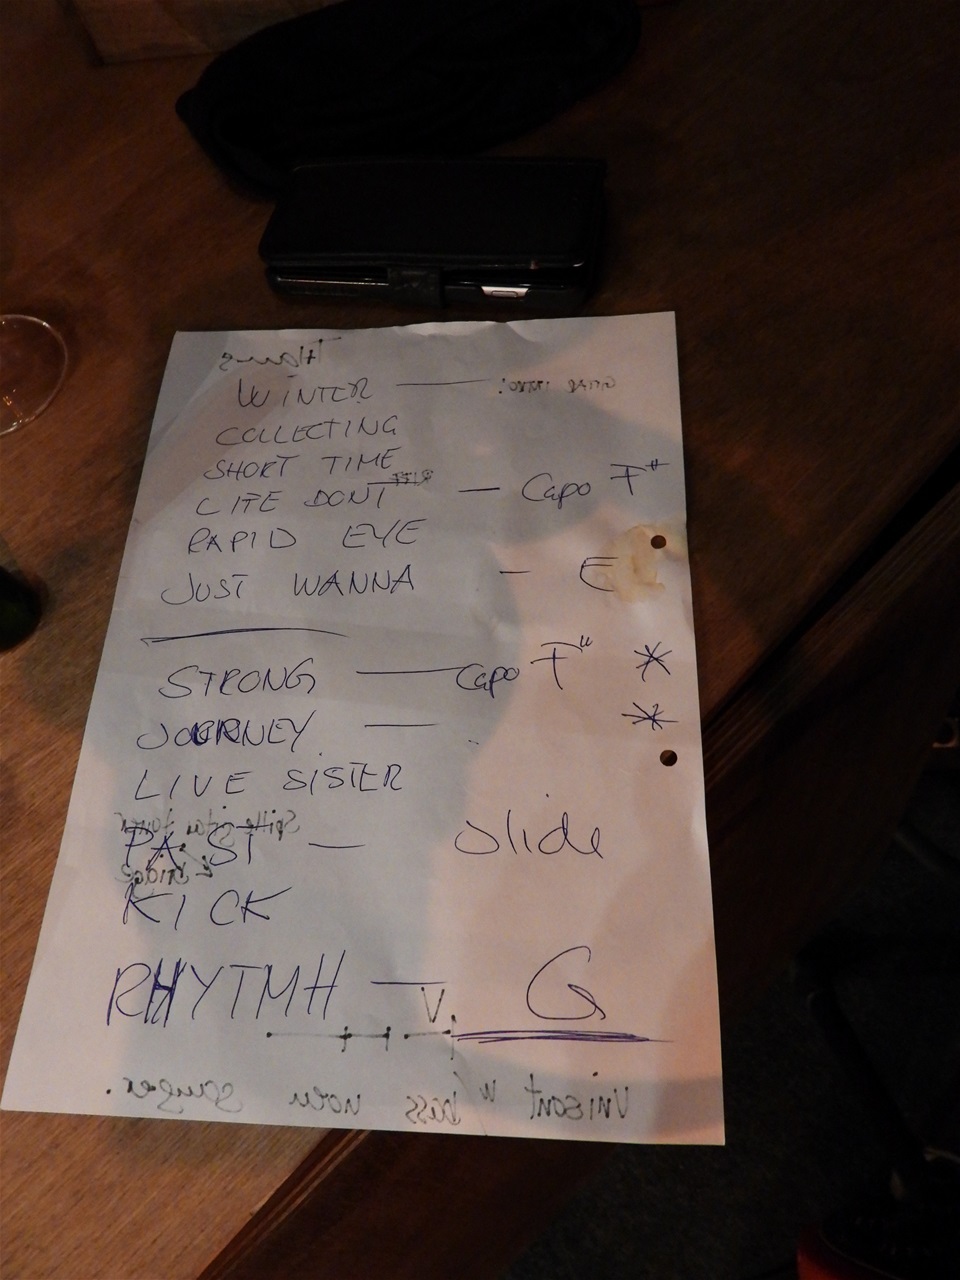 WINTER —
COLLECTING
SHORT TIME
LIFE DONT — Capo F#
RAPID EYE
JUST WANNA — E
STRONG — Capo F" *
JOURNEY — *
LIVE SISTER
PAST — Slide
KICK
RHYTMH — G
Unisont w/ bass noen ganger.